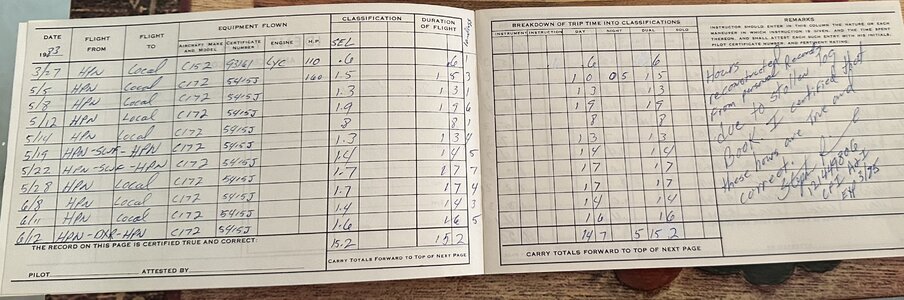 DATE
1983
FLIGHT FROM
FLIGHT TO
EQUIPMENT FLOWN
AIRCRAFT MAKE AND MODEL
CERTIFICATE NUMBER
ENGINE
H.P.
CLASSIFICATION
SEL
DURATION OF FLIGHT
3/27 HPN Local C152 93161 Lyc 110 .6 .6 1
5/5 HPN Local C172 5415J 160 1.5 1 5 3
5/8 HPN Local C172 5415J 1.3 1 3 1
5/12 HPN Local C172 5415J 1.9 1 9 6
5/14 HPN Local C172 5415J .8 8 1
5/19 HPN-SWF-HPN C172 5415J 1.3 1 3 4
5/22 HPN-SWF-HPN C172 5415J 1.4 1 4 5
5/28 HPN Local C172 5415J 1.7 1 7 7
6/8 HPN Local C172 5415J 1.7 1 7 4
6/11 HPN Local C172 5415J 1.4 1 4 3
6/12 HPN-DXR-HPN C172 5415J 1.6 1 6 5
THE RECORD ON THIS PAGE IS CERTIFIED TRUE AND CORRECT:
15.2 15 2
PILOT ATTESTED BY
CARRY TOTALS FORWARD TO TOP OF NEXT PAGE
BREAKDOWN OF TRIP TIME INTO CLASSIFICATIONS
INSTRUMENT INSTRUCTION DAY NIGHT DUAL SOLO
.6 .6
1 0 0 5 1 5
1 3 1 3
1 9 1 9
8 8
1 3 1 3
1 4 1 4
1 7 1 7
1 7 1 7
1 4 1 4
1 6 1 6
14 7 5 15 2
CARRY TOTALS FORWARD TO TOP OF NEXT PAGE
REMARKS
INSTRUCTOR SHOULD ENTER IN THIS COLUMN THE NATURE OR EACH
MANEUVER IN WHICH INSTRUCTION IS GIVEN, AND THE TIME SPENT
THEREON, AND SHALL ATTEST EACH SUCH ENTRY WITH HIS INITIALS,
PILOT CERTIFICATE NUMBER, AND PERTINENT RATING.
Hours
reconstructed
from personal Records
due to stollen log
Book. I certified that
these hours are true and
correct.